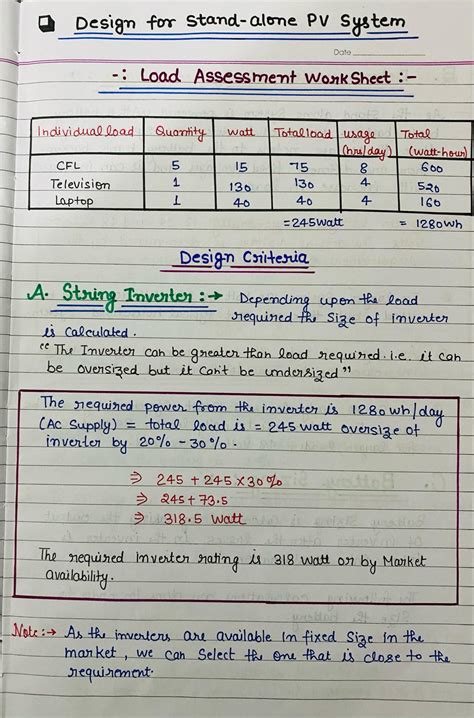 Design for Stand-alone PV System
Date
-: Load Assessment WorkSheet :-
Individual load Quantity watt Total load usage (hrs/day) Total (watt-hour)
CFL 5 15 75 8 600
Television 1 130 130 4 520
Laptop 1 40 40 4 160
=245watt = 1280wh
Design Criteria
A. String Inverter :→ Depending upon the load
required the Size of inverter
is calculated.
"The Inverter can be greater than load required. i.e. it can
be oversized but it can't be undersized"
The required power from the inverter is 1280wh/day
(AC Supply) = total load is = 245 watt oversize of
inverter by 20% - 30%.
⇒ 245 + 245 × 30%
⇒ 245 + 73.5
⇒ 318.5 watt
The required Inverter rating is 318 watt or by Market
availability.
Note :→ As the inverters are available in fixed Size in the
market, we can Select the one that is close to the
requirement.